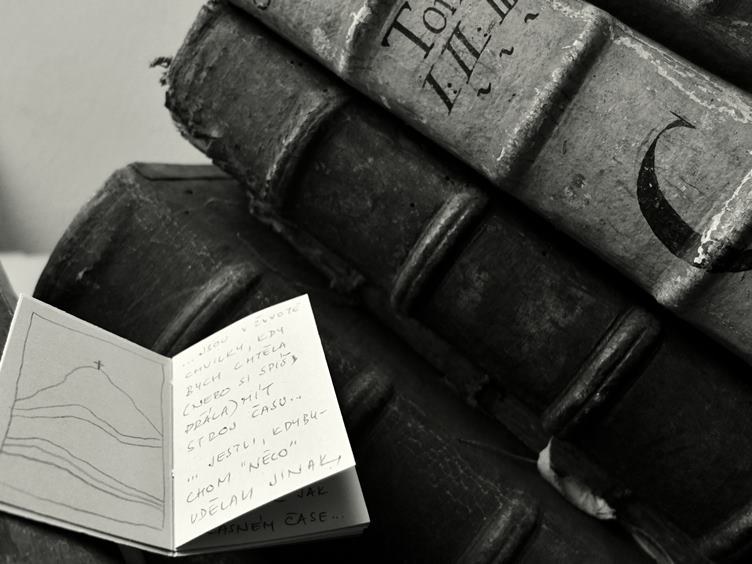 Tom
I. II. III
C
...JSOU V ŽIVOTĚ
CHVILKY, KDY
BYCH CHTĚLA
(NEBO SI SPÍŠ
PŘÁLA) MÍT
STROJ ČASU...
... JESTLI, KDYBY-
CHOM "NĚCO"
UDĚLALI JINAK,
JAK
ČASE...